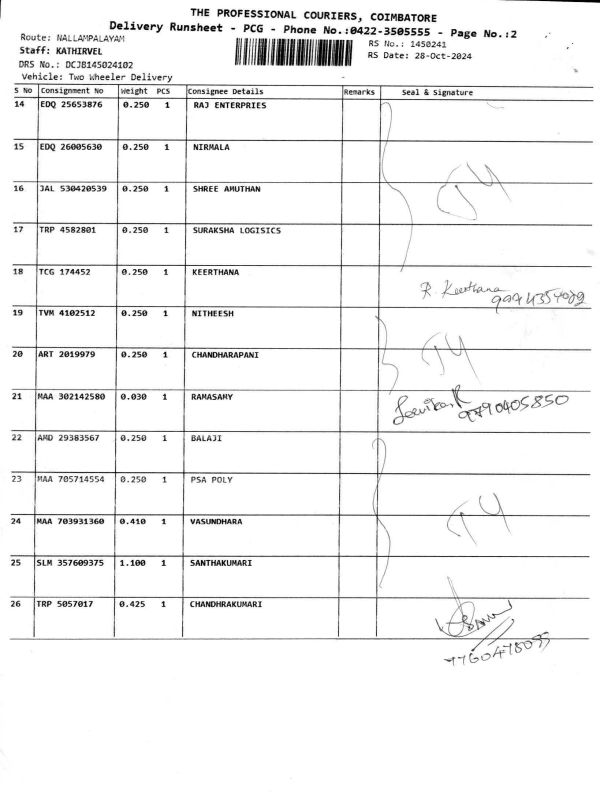 THE PROFESSIONAL COURIERS, COIMBATORE
Delivery Runsheet - PCG - Phone No.:0422-3505555 - Page No.:2
Route: NALLAMPALAYAM
RS No.: 1450241
Staff: KATHIRVEL
RS Date: 28-Oct-2024
DRS No.: DCJB145024102
Vehicle: Two Wheeler Delivery
S No Consignment No Weight PCS Consignee Details Remarks Seal & Signature
14 EDQ 25653876 0.250 1 RAJ ENTERPRIES
15 EDQ 26005630 0.250 1 NIRMALA
16 JAL 530420539 0.250 1 SHREE AMUTHAN
17 TRP 4582801 0.250 1 SURAKSHA LOGISICS
18 TCG 174452 0.250 1 KEERTHANA
R. Keerthana
19 TVM 4102512 0.250 1 NITHEESH
20 ART 2019979 0.250 1 CHANDHARAPANI
21 MAA 302142580 0.030 1 RAMASAMY
9790405850
22 AMD 29383567 0.250 1 BALAJI
23 MAA 705714554 0.250 1 PSA POLY
24 MAA 703931360 0.410 1 VASUNDHARA
25 SLM 357609375 1.100 1 SANTHAKUMARI
26 TRP 5057017 0.425 1 CHANDHRAKUMARI